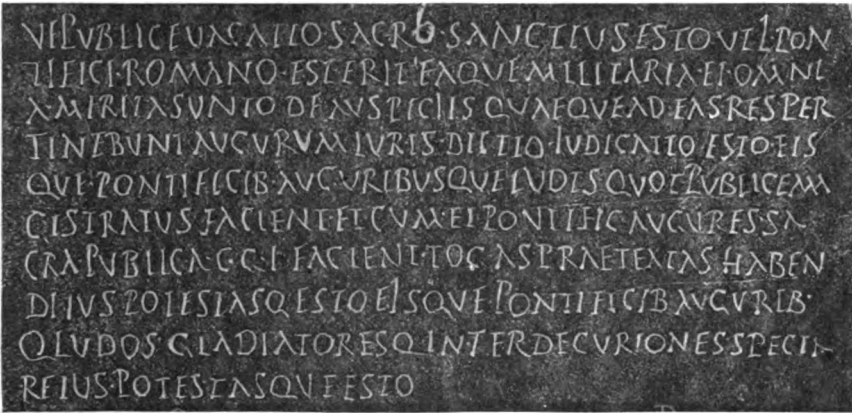 VE PUBLICE VACATIO SACRO·SANCTIUS ESTO UTI PON
TIFICI·ROMANO·EST ERIT EAQUE MILITARIA EI OMNI
A·MERITA SUNTO DE AUSPICIIS QUAEQUE AD EAS RES PER
TINEBUNT AUGURUM IURIS·DICTIO·IUDICATIO ESTO·EIS
QUE·PONTIFICIB·AUGURIBUSQUE LUDIS QUOT PUBLICE MA
GISTRATUS FACIENT·ET CUM·EI PONTIFIC AUGURES·SA
CRA PUBLICA·C·G·I·FACIENT·TOGAS PRAETEXTAS HABEN
DI IUS POTESTASQ ESTO EISQUE PONTIFICIB AUGURIB·
Q LUDOS·GLADIATORESQ INTER DECURIONES SPECTA
RE IUS·POTESTASQUE ESTO